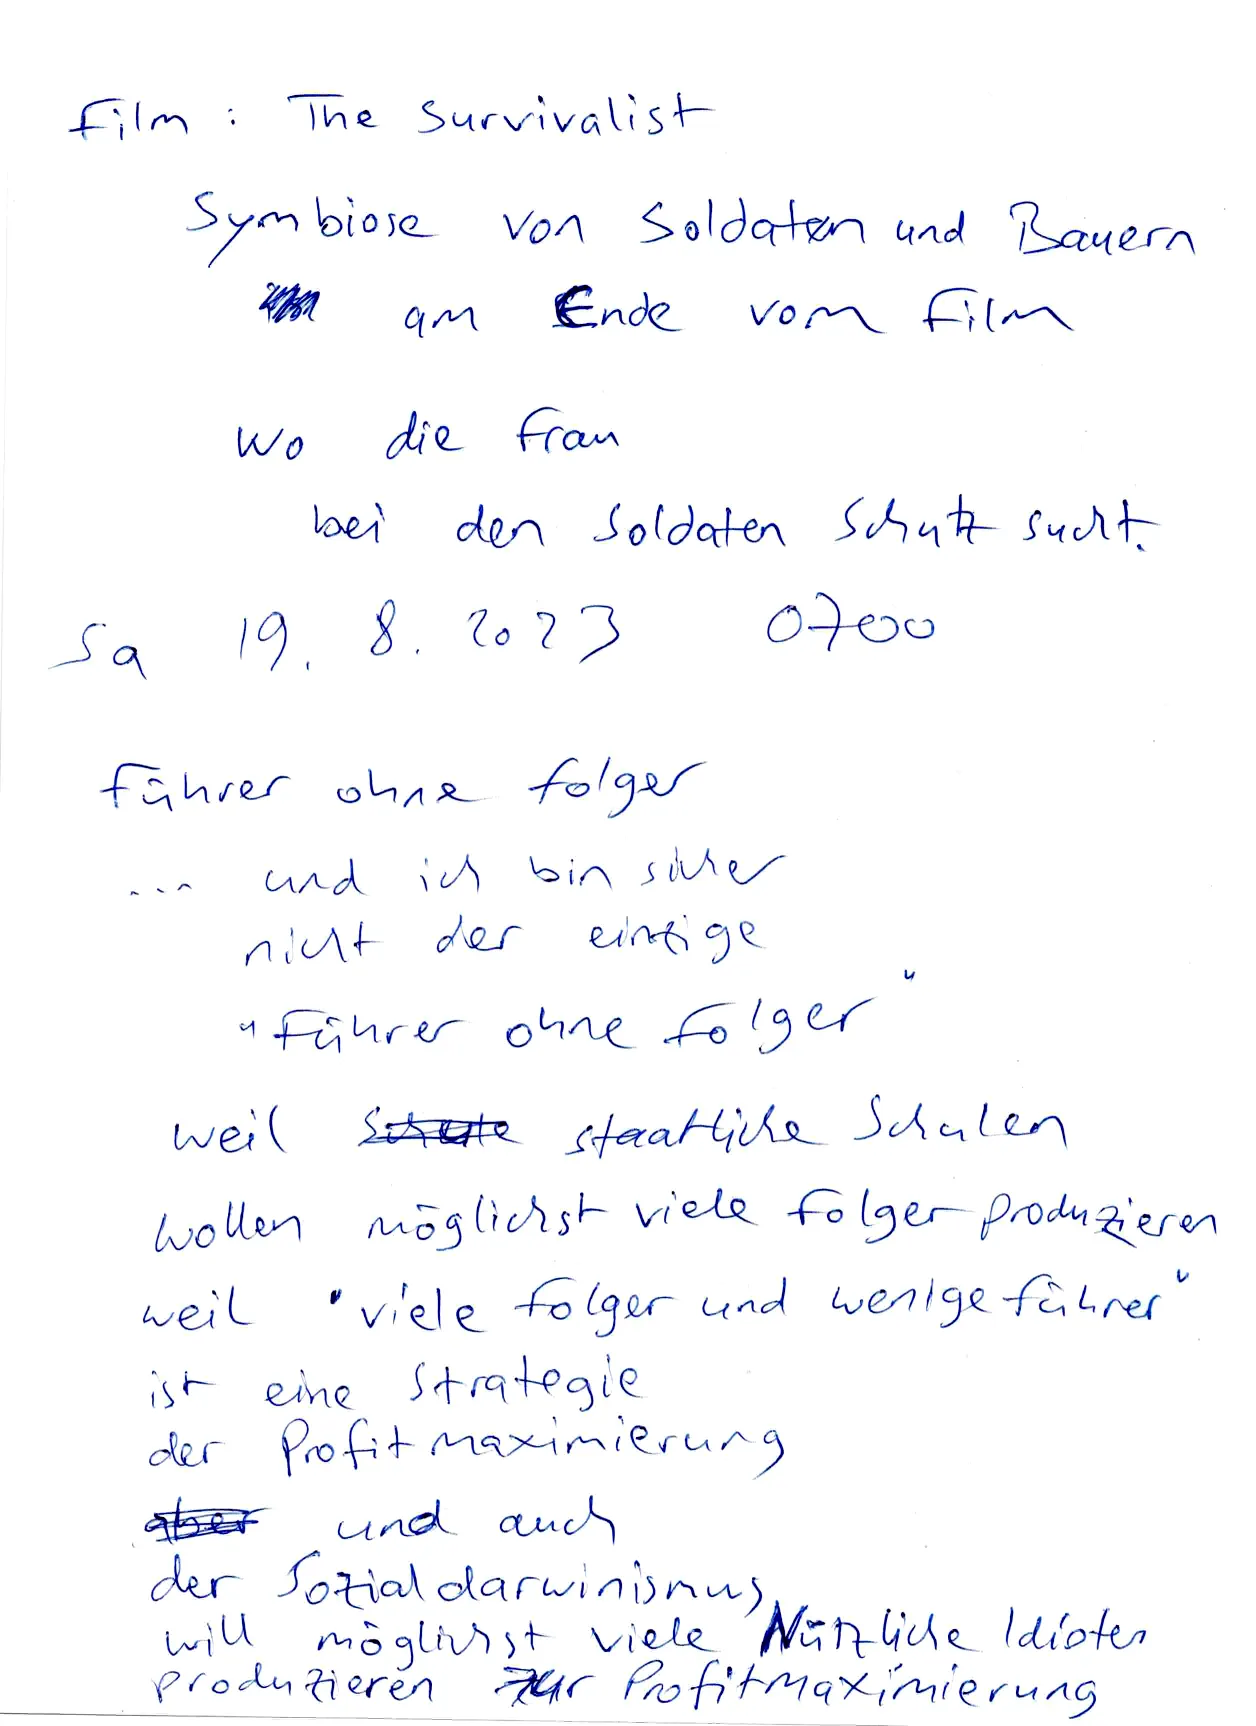 Film: The Survivalist
Symbiose von Soldaten und Bauern
am Ende vom Film
wo die Frau
bei den Soldaten Schutz sucht.
Sa 19. 8. 2023 0700
Führer ohne Folger
... und ich bin sicher
nicht der einzige
"Führer ohne Folger"
weil staatliche Schulen
wollen möglichst viele Folger produzieren
weil "viele Folger und wenige Führer"
ist eine Strategie
der Profitmaximierung
aber und auch
der Sozialdarwinismus
will möglichst viele Nützliche Idioten
produzieren zur Profitmaximierung